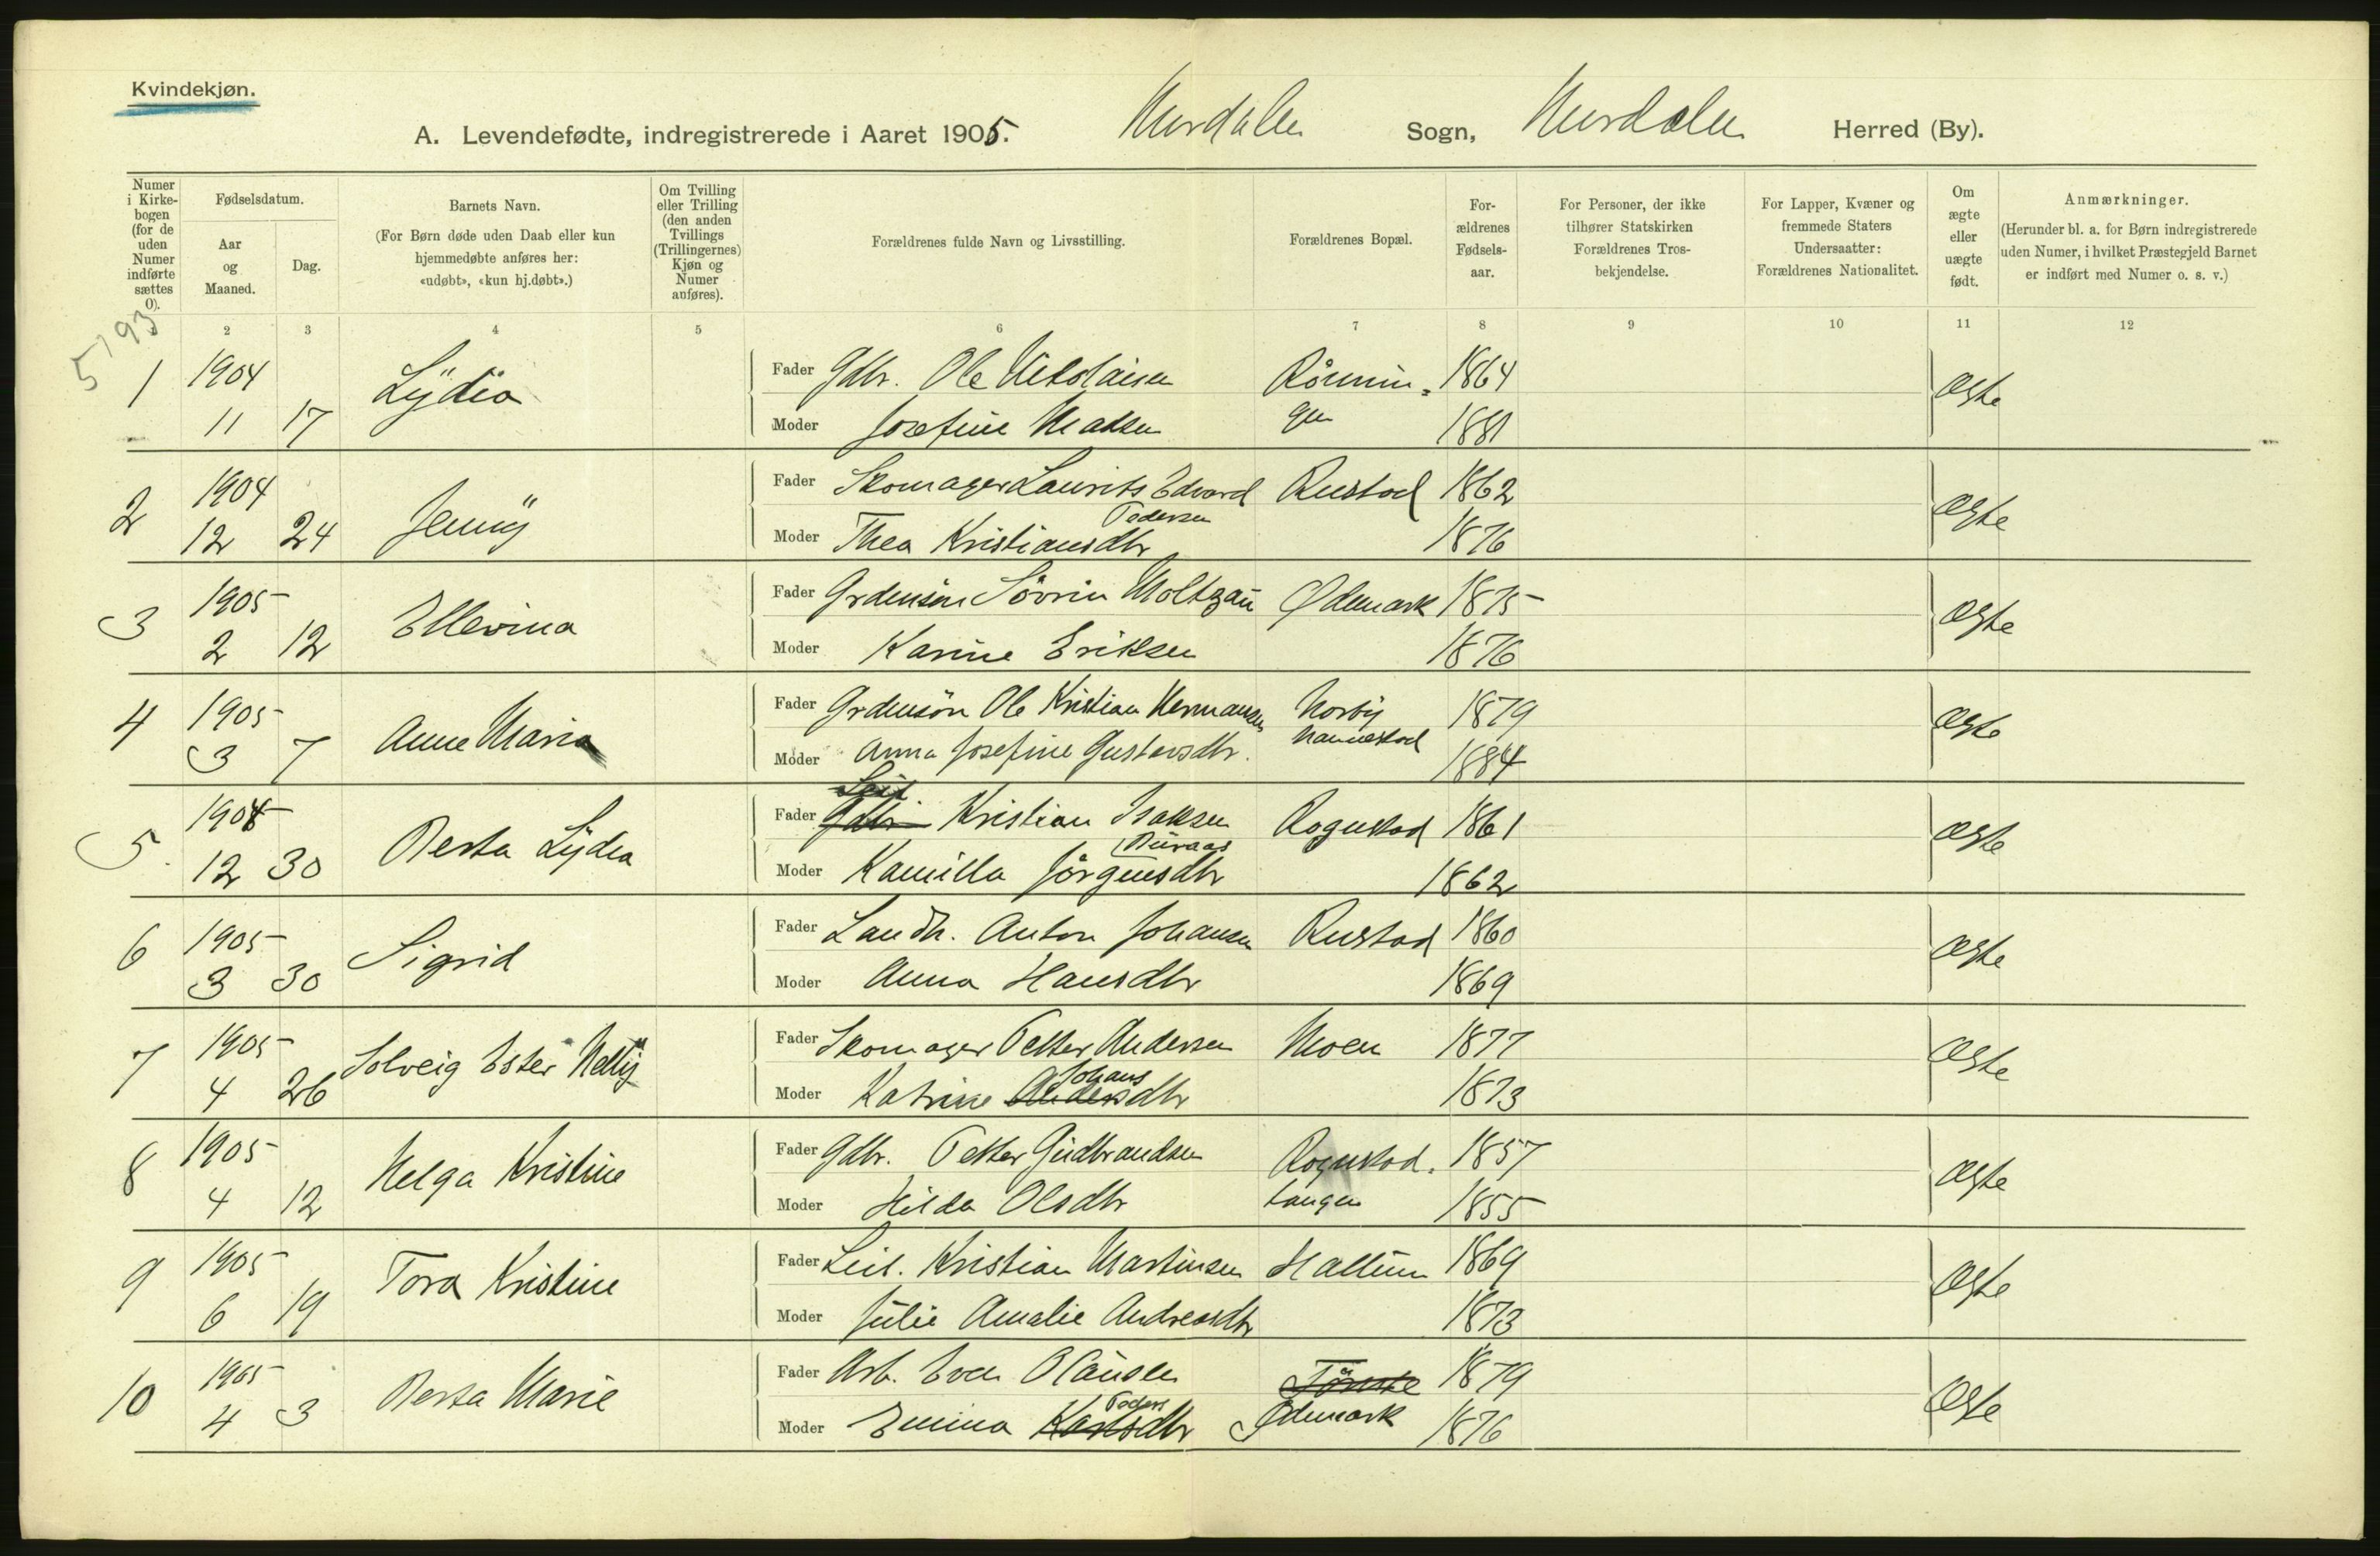 Kvindekjøn.
A. Levendefødte, indregistrerede i Aaret 1905. Hurdalen Sogn, Hurdalen Herred (By).
Numer i Kirkebogen (for de uden Numer indførte sættes 0).
Fødselsdatum.
Aar og Maaned.
Dag.
Barnets Navn.
(For Børn døde uden Daab eller kun hjemmedøbte anføres her: «udøbt», «kun hj.døbt».)
Om Tvilling eller Trilling (den anden Tvillings (Trillingernes) Kjøn og Numer anføres).
Forældrenes fulde Navn og Livsstilling.
Forældrenes Bopæl.
For-ældrenes Fødsels-aar.
For Personer, der ikke tilhører Statskirken Forældrenes Tros-bekjendelse.
For Lapper, Kvæner og fremmede Staters Undersaatter: Forældrenes Nationalitet.
Om ægte eller uægte født.
Anmærkninger.
(Herunder bl. a. for Børn indregistrerede uden Numer, i hvilket Præstegjeld Barnet er indført med Numer o. s. v.)
2 3 4 5 6 7 8 9 10 11 12
5793
1 1904 Lydia Fader Gdbr. Ole Nikolaisen Rönnin= 1864 ægte
11 17 Moder Josefine Madsen gen 1881
2 1904 Jenny Fader Skomager Laurits Edvard Rustad 1862 ægte
Pedersen
12 24 Moder Thea Kristiansdtr 1876
3 1905 Ellevina Fader Grdensön Sövrin Moltzau Ødemark 1875 ægte
2 12 Moder Karine Eriksen 1876
4 1905 Anne Maria Fader Grdensön Ole Kristian Hermansen Norby 1879 ægte
Nannestad
3 7 Moder Anna Josefine Gustavsdtr. 1884
Leil
5 1904 Berta Lydia Fader Gdbr Kristian Isaksen Rognstad 1861 ægte
12 30 Moder Kamilla Jörgensdtr 1862
6 1905 Sigrid Fader Landh. Anton Johansen Rustad 1860 ægte
3 30 Moder Anna Hansdtr 1869
7 1905 Solveig Ester Nelly Fader Skomager Petter Andersen Moen 1877 ægte
Johans
4 26 Moder Katrine Andersdtr 1873
8 1905 Helga Kristine Fader Gdbr. Petter Gudbrandsen Rognstad. 1857 ægte
4 12 Moder Hilda Olsdtr tangen 1855
9 1905 Tora Kristine Fader Leil. Kristian Martinsen Hallum 1869 ægte
6 19 Moder Julie Amalie Andreasdtr 1873
10 1905 Berta Marie Fader Arb. Even Olausen 1879 ægte
Peders
4 3 Moder Emma Karlsdtr Ødemark 1876